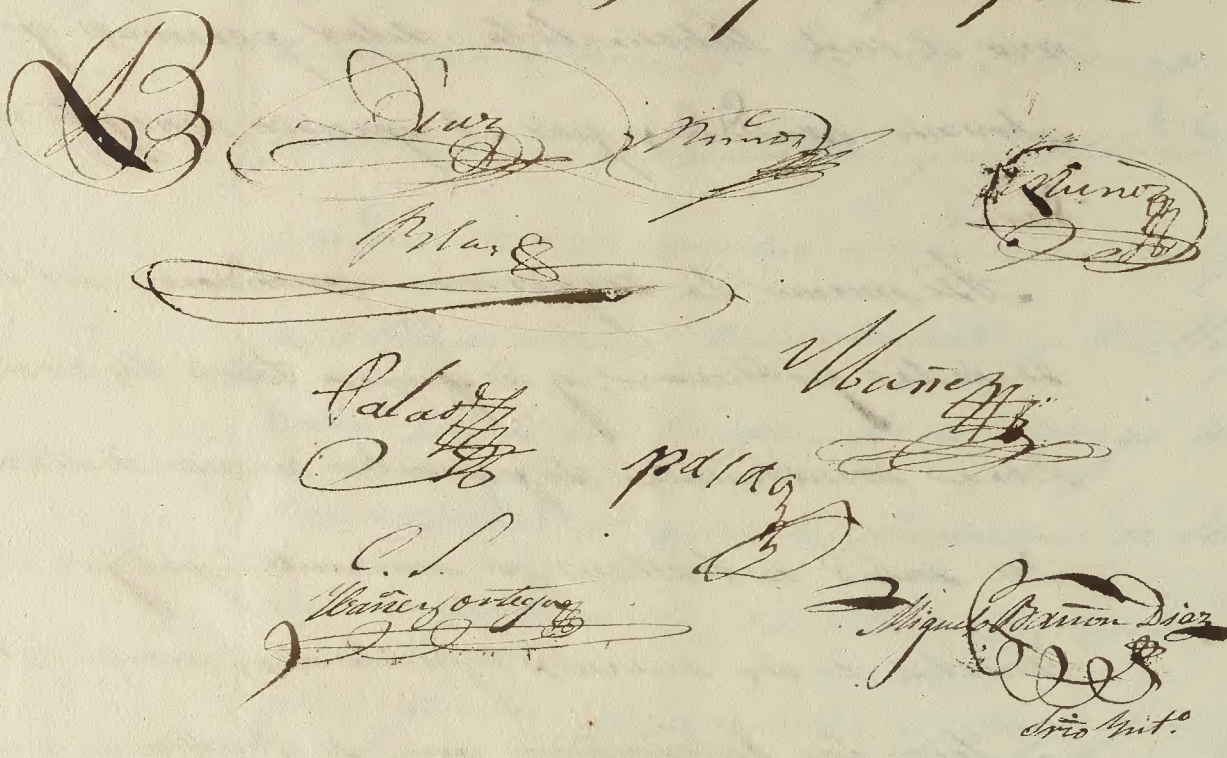 Diaz Muñoz
Muñoz
Blas
Palao Ybañez
palao
C. S.
Ybañez ortega
Miguel Bañon Diaz
Srio Ynt.º